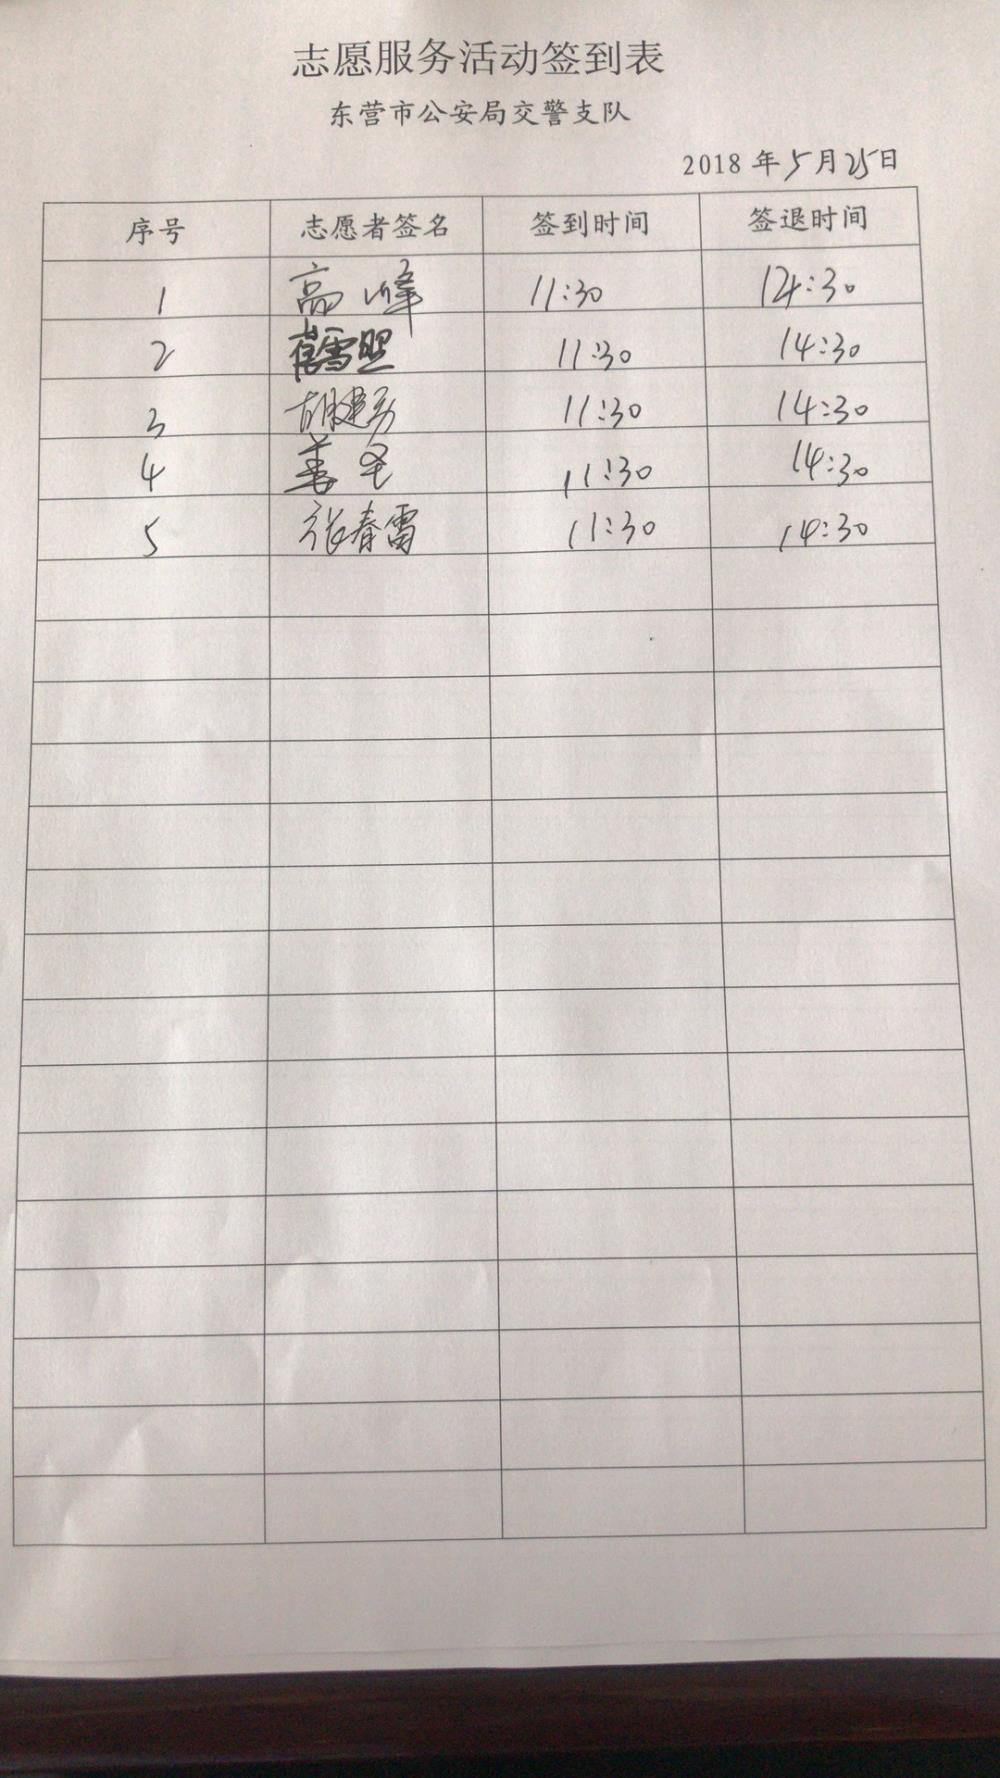 志愿服务活动签到表
东营市公安局交警支队
2018 年 5 月 25 日
序号 志愿者签名 签到时间 签退时间
1 高峰 11:30 14:30
2 11:30 14:30
3 胡建勇 11:30 14:30
4 姜圣 11:30 14:30
5 张春雷 11:30 14:30